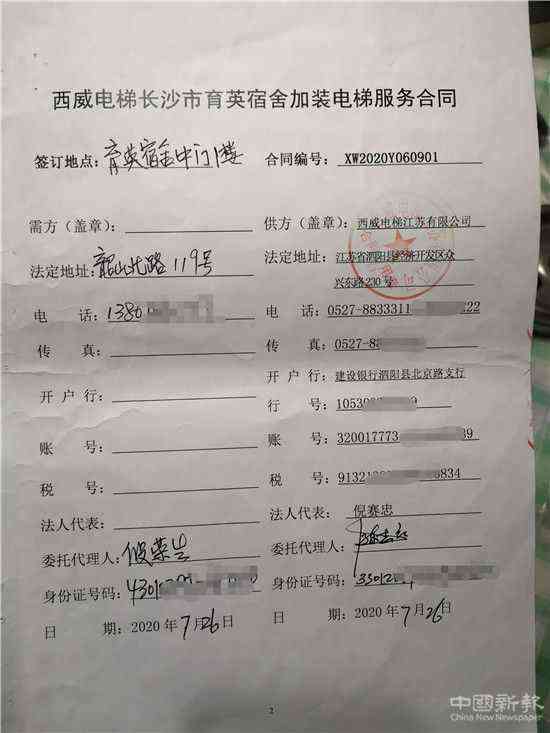 西威电梯长沙市育英宿舍加装电梯服务合同
签订地点：育英宿舍中门1楼 合同编号： XW2020Y060901
需方（盖章）： 供方（盖章）：西威电梯江苏有限公司
法定地址：韶山北路119号 法定地址：江苏省泗阳县经济开发区众
兴东路230号
电 话：1380 电 话：0527-8833311 22
传 真： 传 真：0527-88
开 户 行： 开 户 行：建设银行泗阳县北京路支行
行 号：10530 9
账 号： 账 号：320017773 39
税 号： 税 号：91321 6834
法人代表： 法人代表： 倪赛忠
委托代理人： 委托代理人：
身份证号码：4301 身份证号码：33012
日 期：2020 年 7月26日 日 期：2020 年 7月26日
2
中國新報
China New Newspaper